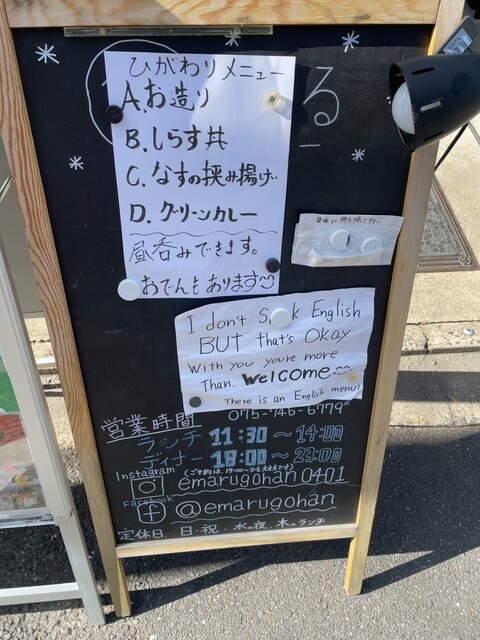 る
ひがわりメニュー
A.お造り
B.しらす丼
C.なすの挟み揚げ
D.グリーンカレー
昼呑みできます。
おでんもあります
自由に持ち帰って下さい
I don't English
BUT that's Okay
With you you're more
Than welcome
There is an English menu!
075-746-6779
営業時間
ランチ 11:30～14:00
ディナー 18:00～23:00
Instagram
emarugohan0401
Facebook
@emarugohan
定休日、日・祝、水の夜、木のランチ